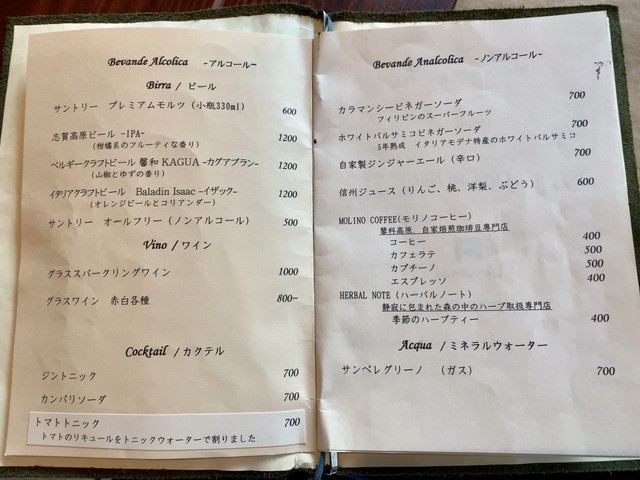 Bevande Alcolica -アルコール-
Birra / ビール
サントリー プレミアムモルツ (小瓶330ml) 600
志賀高原ビール -IPA- 1200
(柑橘系のフルーティな香り)
ベルギークラフトビール 馨和 KAGUA -カグアブラン- 1200
(山椒とゆずの香り)
イタリアクラフトビール Baladin Isaac -イザック- 1200
(オレンジピールとコリアンダー)
サントリー オールフリー (ノンアルコール) 500
Vino / ワイン
グラススパークリングワイン 1000
グラスワイン 赤白各種 800~
Cocktail / カクテル
ジントニック 700
カンパリソーダ 700
トマトトニック 700
トマトのリキュールをトニックウォーターで割りました
Bevande Analcolica -ノンアルコール-
カラマンシービネガーソーダ 700
フィリピンのスーパーフルーツ
ホワイトバルサミコビネガーソーダ 700
5年熟成 イタリアモデナ特産のホワイトバルサミコ
自家製ジンジャーエール (辛口) 700
信州ジュース (りんご、桃、洋梨、ぶどう) 600
MOLINO COFFEE(モリノコーヒー)
蓼科高原 自家焙煎珈琲豆専門店
コーヒー 400
カフェラテ 500
カプチーノ 500
エスプレッソ 400
HERBAL NOTE (ハーバルノート)
静寂に包まれた森の中のハーブ取扱専門店
季節のハーブティー 400
Acqua / ミネラルウォーター
サンペレグリーノ (ガス) 700